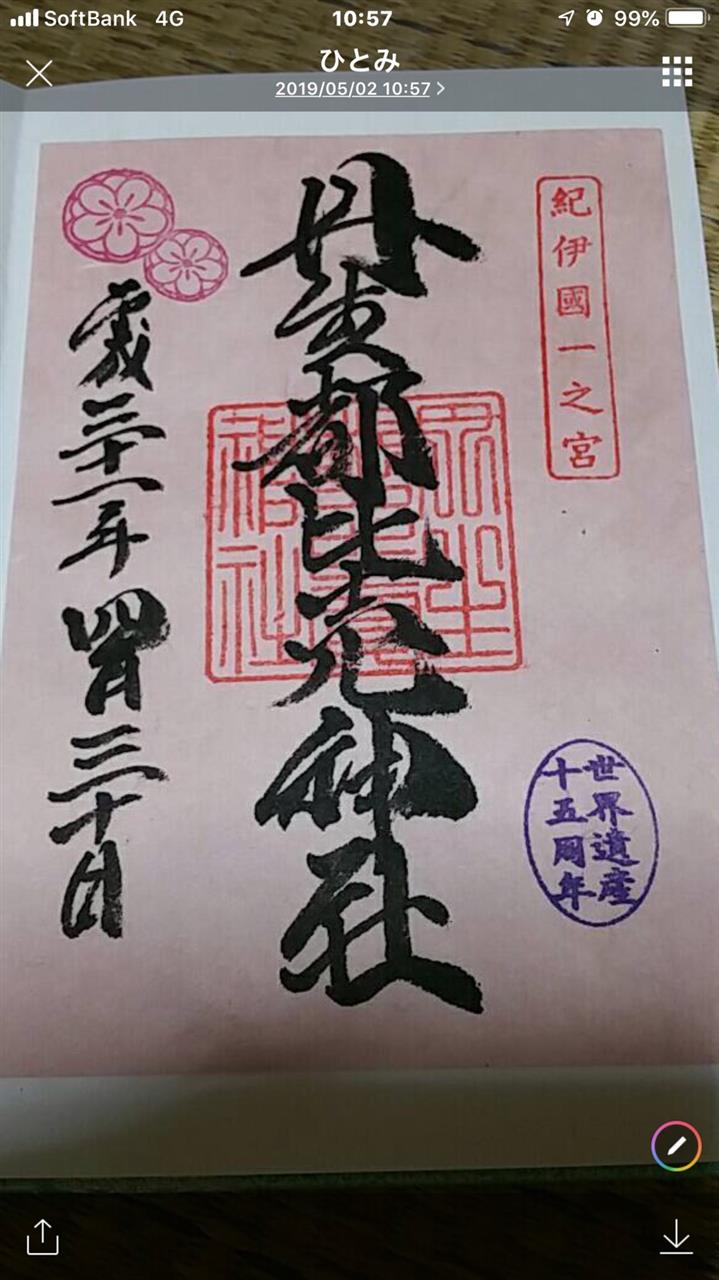 SoftBank 4G 10:57 99%
ひとみ
2019/05/02 10:57
紀伊國一之宮
丹生都比売神社
平成三十一年四月三十日
世界遺産
十五周年